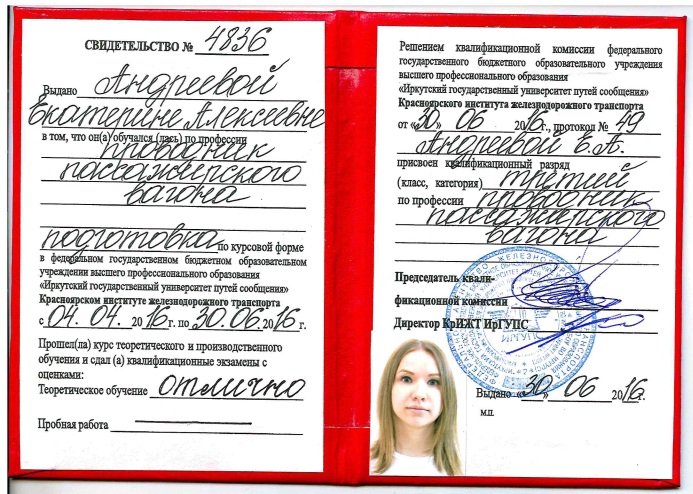 СВИДЕТЕЛЬСТВО № 4836
Выдано Андреевой
Екатерине Алексеевне
в том, что он(а) обучался (лась) по профессии
проводник
пассажирского
вагона
подготовка по курсовой форме
в федеральном государственном бюджетном образовательном
учреждении высшего профессионального образования
"Иркутский государственный университет путей сообщения"
Красноярском институте железнодорожного транспорта
с 04. 04. 2016 г. по 30. 06. 2016 г.
Прошел(ла) курс теоретического и производственного
обучения и сдал (а) квалификационные экзамены с
оценками:
Теоретическое обучение отлично
Пробная работа —
Решением квалификационной комиссии федерального
государственного бюджетного образовательного учреждения
высшего профессионального образования
"Иркутский государственный университет путей сообщения"
Красноярского института железнодорожного транспорта
от «30» 06 2016г., протокол № 49
Андреевой Е. А.
присвоен квалификационный разряд
(класс, категория) третий
по профессии проводник
пассажирского
вагона
Председатель квали-
фикационной комиссии
Директор КрИЖТ ИрГУПС
Выдано «30» 06 2016г.
м.п.